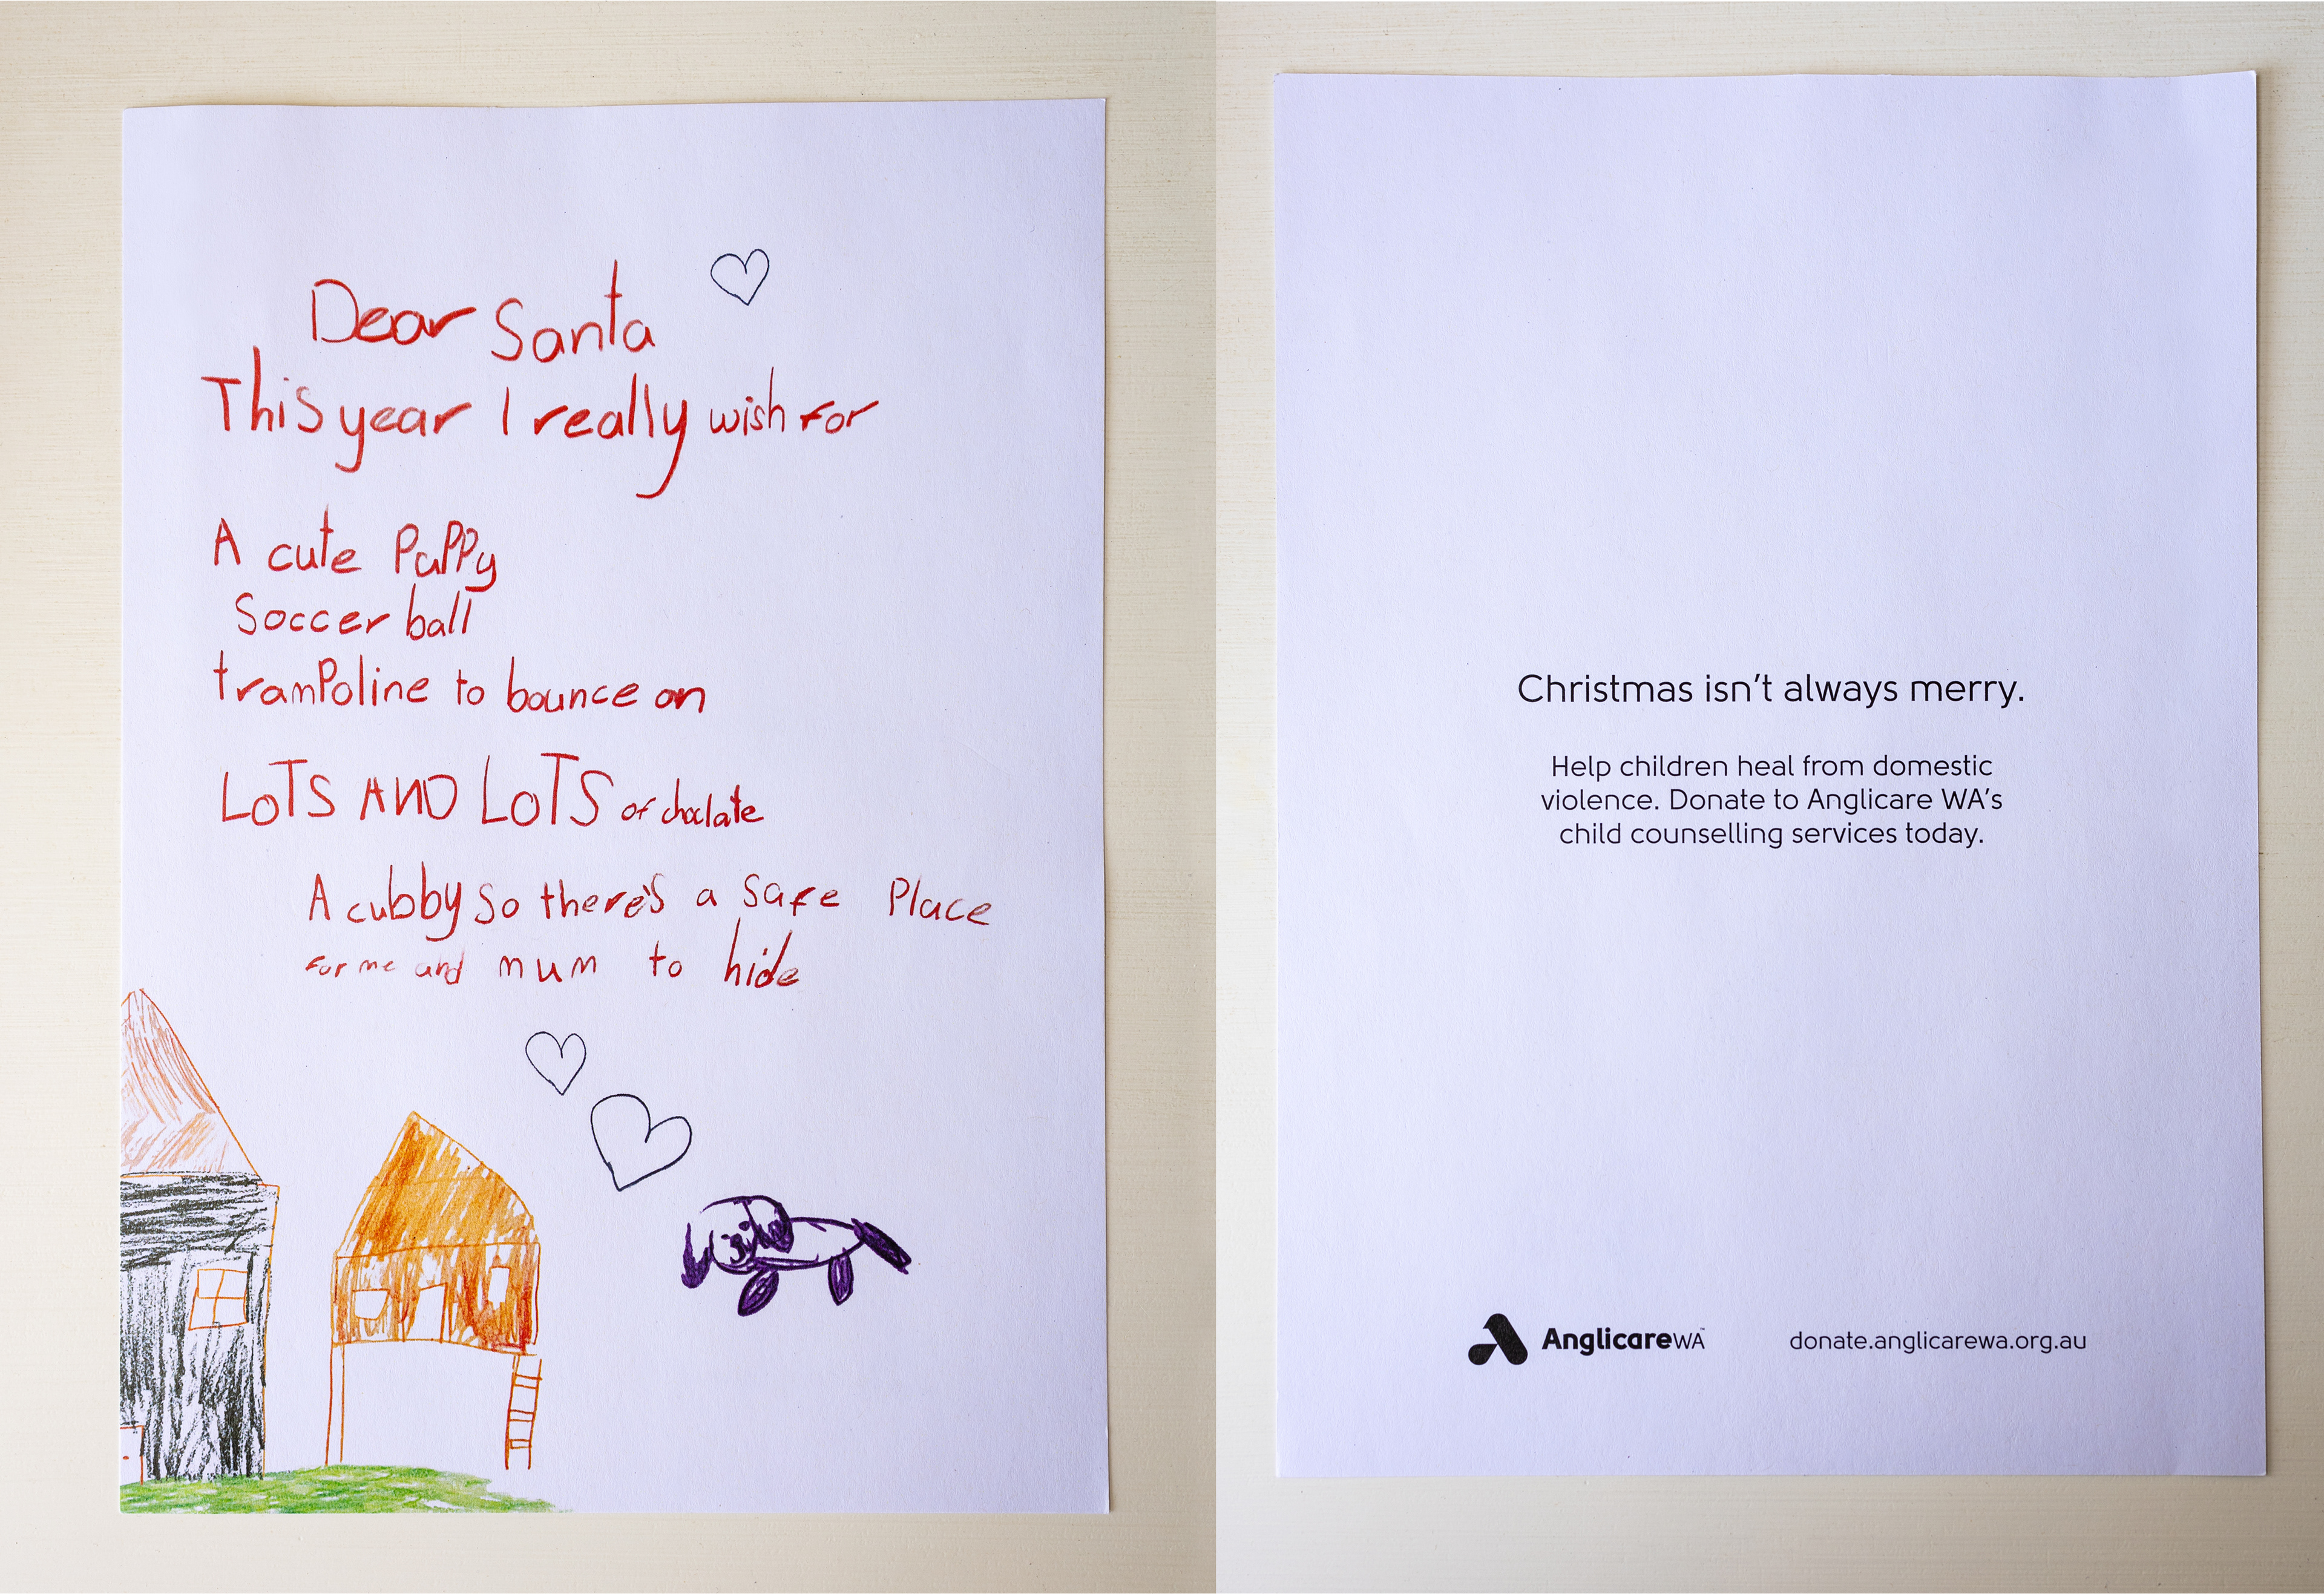 Dear Santa
This year I really wish for
A cute PuPPy
Soccer ball
tramPoline to bounce on
LOTS AND LOTS of choclate
A cubby so there's a safe Place
for me and mum to hide
Christmas isn't always merry.
Help children heal from domestic
violence. Donate to Anglicare WA's
child counselling services today.
Anglicare WA™
donate.anglicarewa.org.au